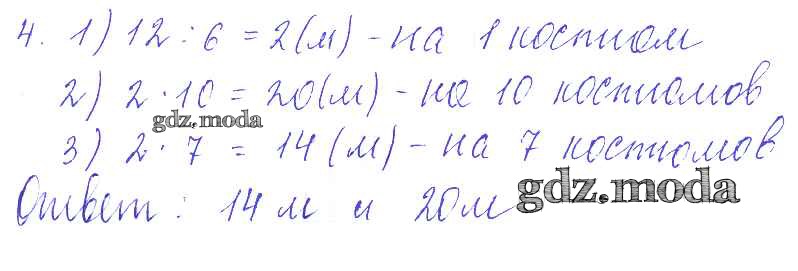 4. 1) 12 : 6 = 2 (м) - на 1 костюм
2) 2 · 10 = 20 (м) - на 10 костюмов
gdz.moda
3) 2 · 7 = 14 (м) - на 7 костюмов
Ответ: 14 м и 20 м
gdz.moda